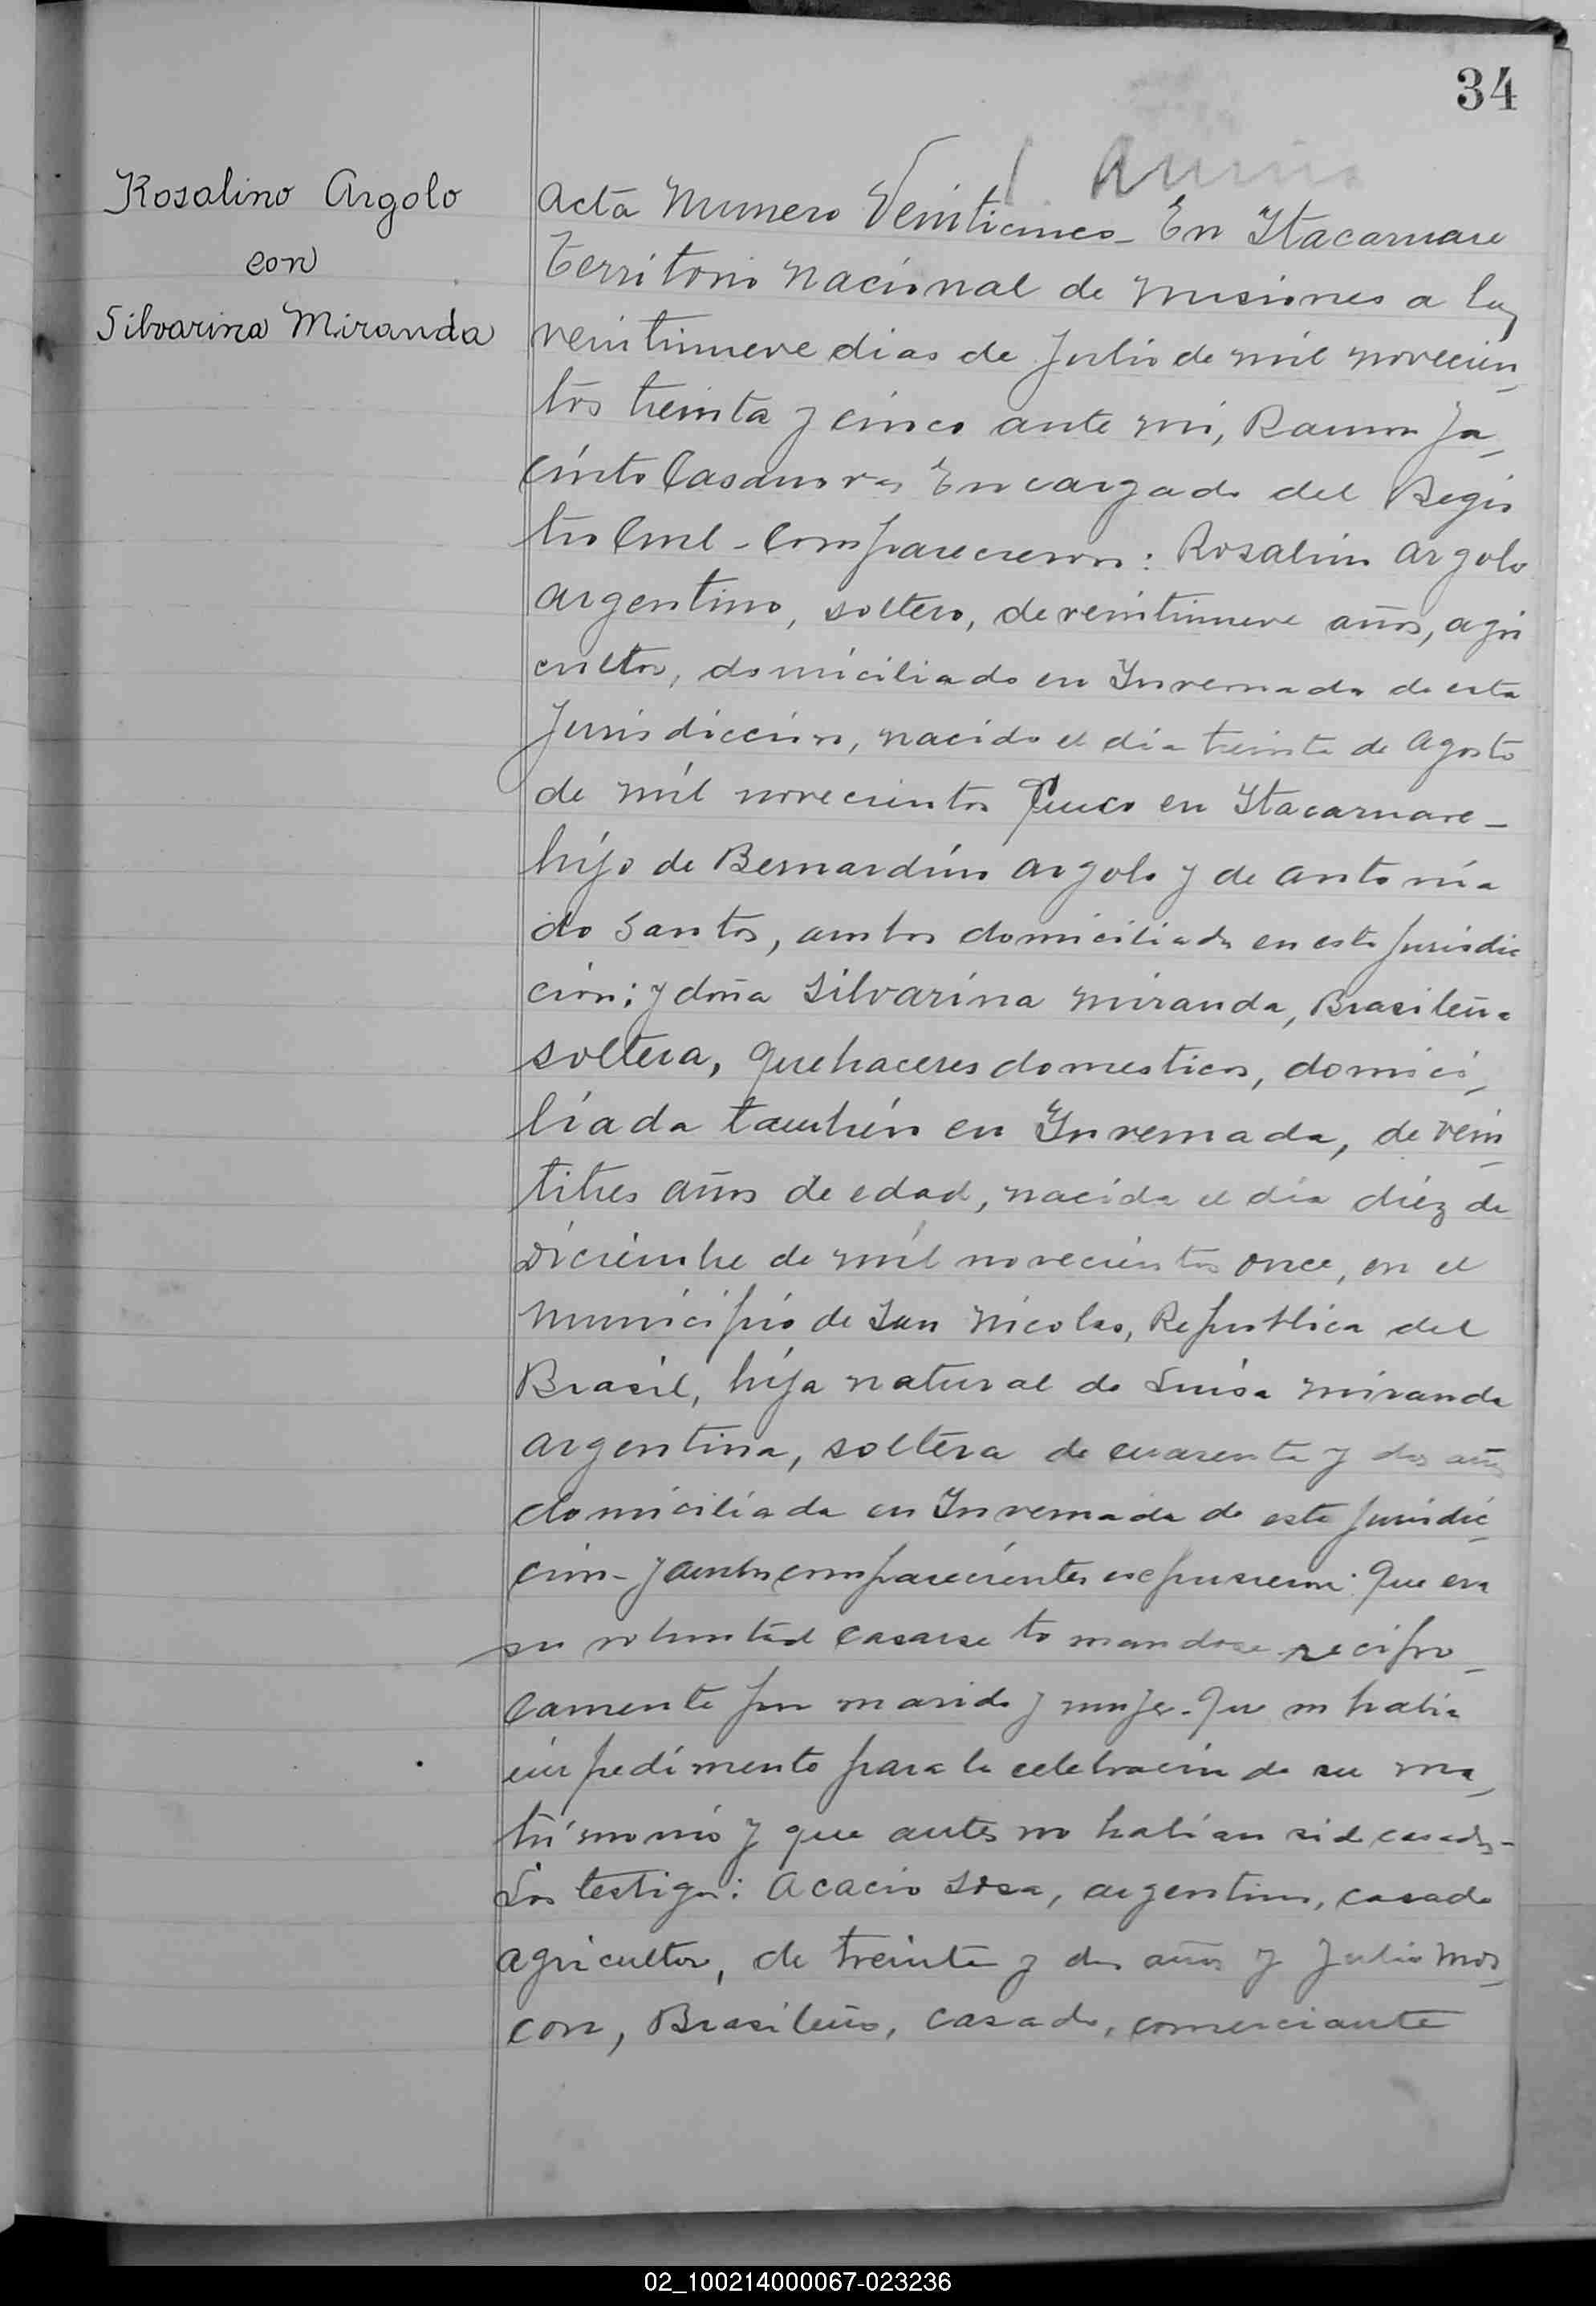 34
Rosalino Argolo
con
Silvarina Miranda
Acta Numero Veinticinco - En Itacaruare
Territorio Nacional de Misiones a los
veintinueve dias de Julio de mil novecien_
tos treinta y cinco ante mi, Ramon Ja_
cinto Casanova Encargado del Regis
tro Civil - Comparecieron: Rosalino Argolo
argentino, soltero, de veintinueve años, agri
cultor, domiciliado en Invernada de esta
Jurisdiccion, nacido el dia treinta de Agosto
de mil novecientos Cinco en Itacaruare -
hijo de Bernardino Argolo y de Antonia
do Santos, ambos domiciliados en esta Jurisdic
cion; y doña Silvarina Miranda, Brasileña
soltera, quehaceres domesticos, domici_
liada también en Invernada, de vein_
titres años de edad, nacida el dia diez de
Diciembre de mil novecientos once, en el
municipio de San Nicolas, Republica del
Brasil, hija natural de Luisa Miranda
argentina, soltera de cuarenta y dos años
domiciliada en Invernada de esta Jurisdic_
cion - y ambos comparecientes expusieron: Que era
su voluntad casarse tomandose recipro_
camente por marido y mujer. Que no habia
impedimento para la celebracion de su ma_
trimonio y que antes no habian sido casados -
Los testigos: Acacio Sosa, argentino, casado
agricultor, de treinta y dos años y Julio Mos_
con, Brasileño, casado, comerciante
02_100214000067-023236